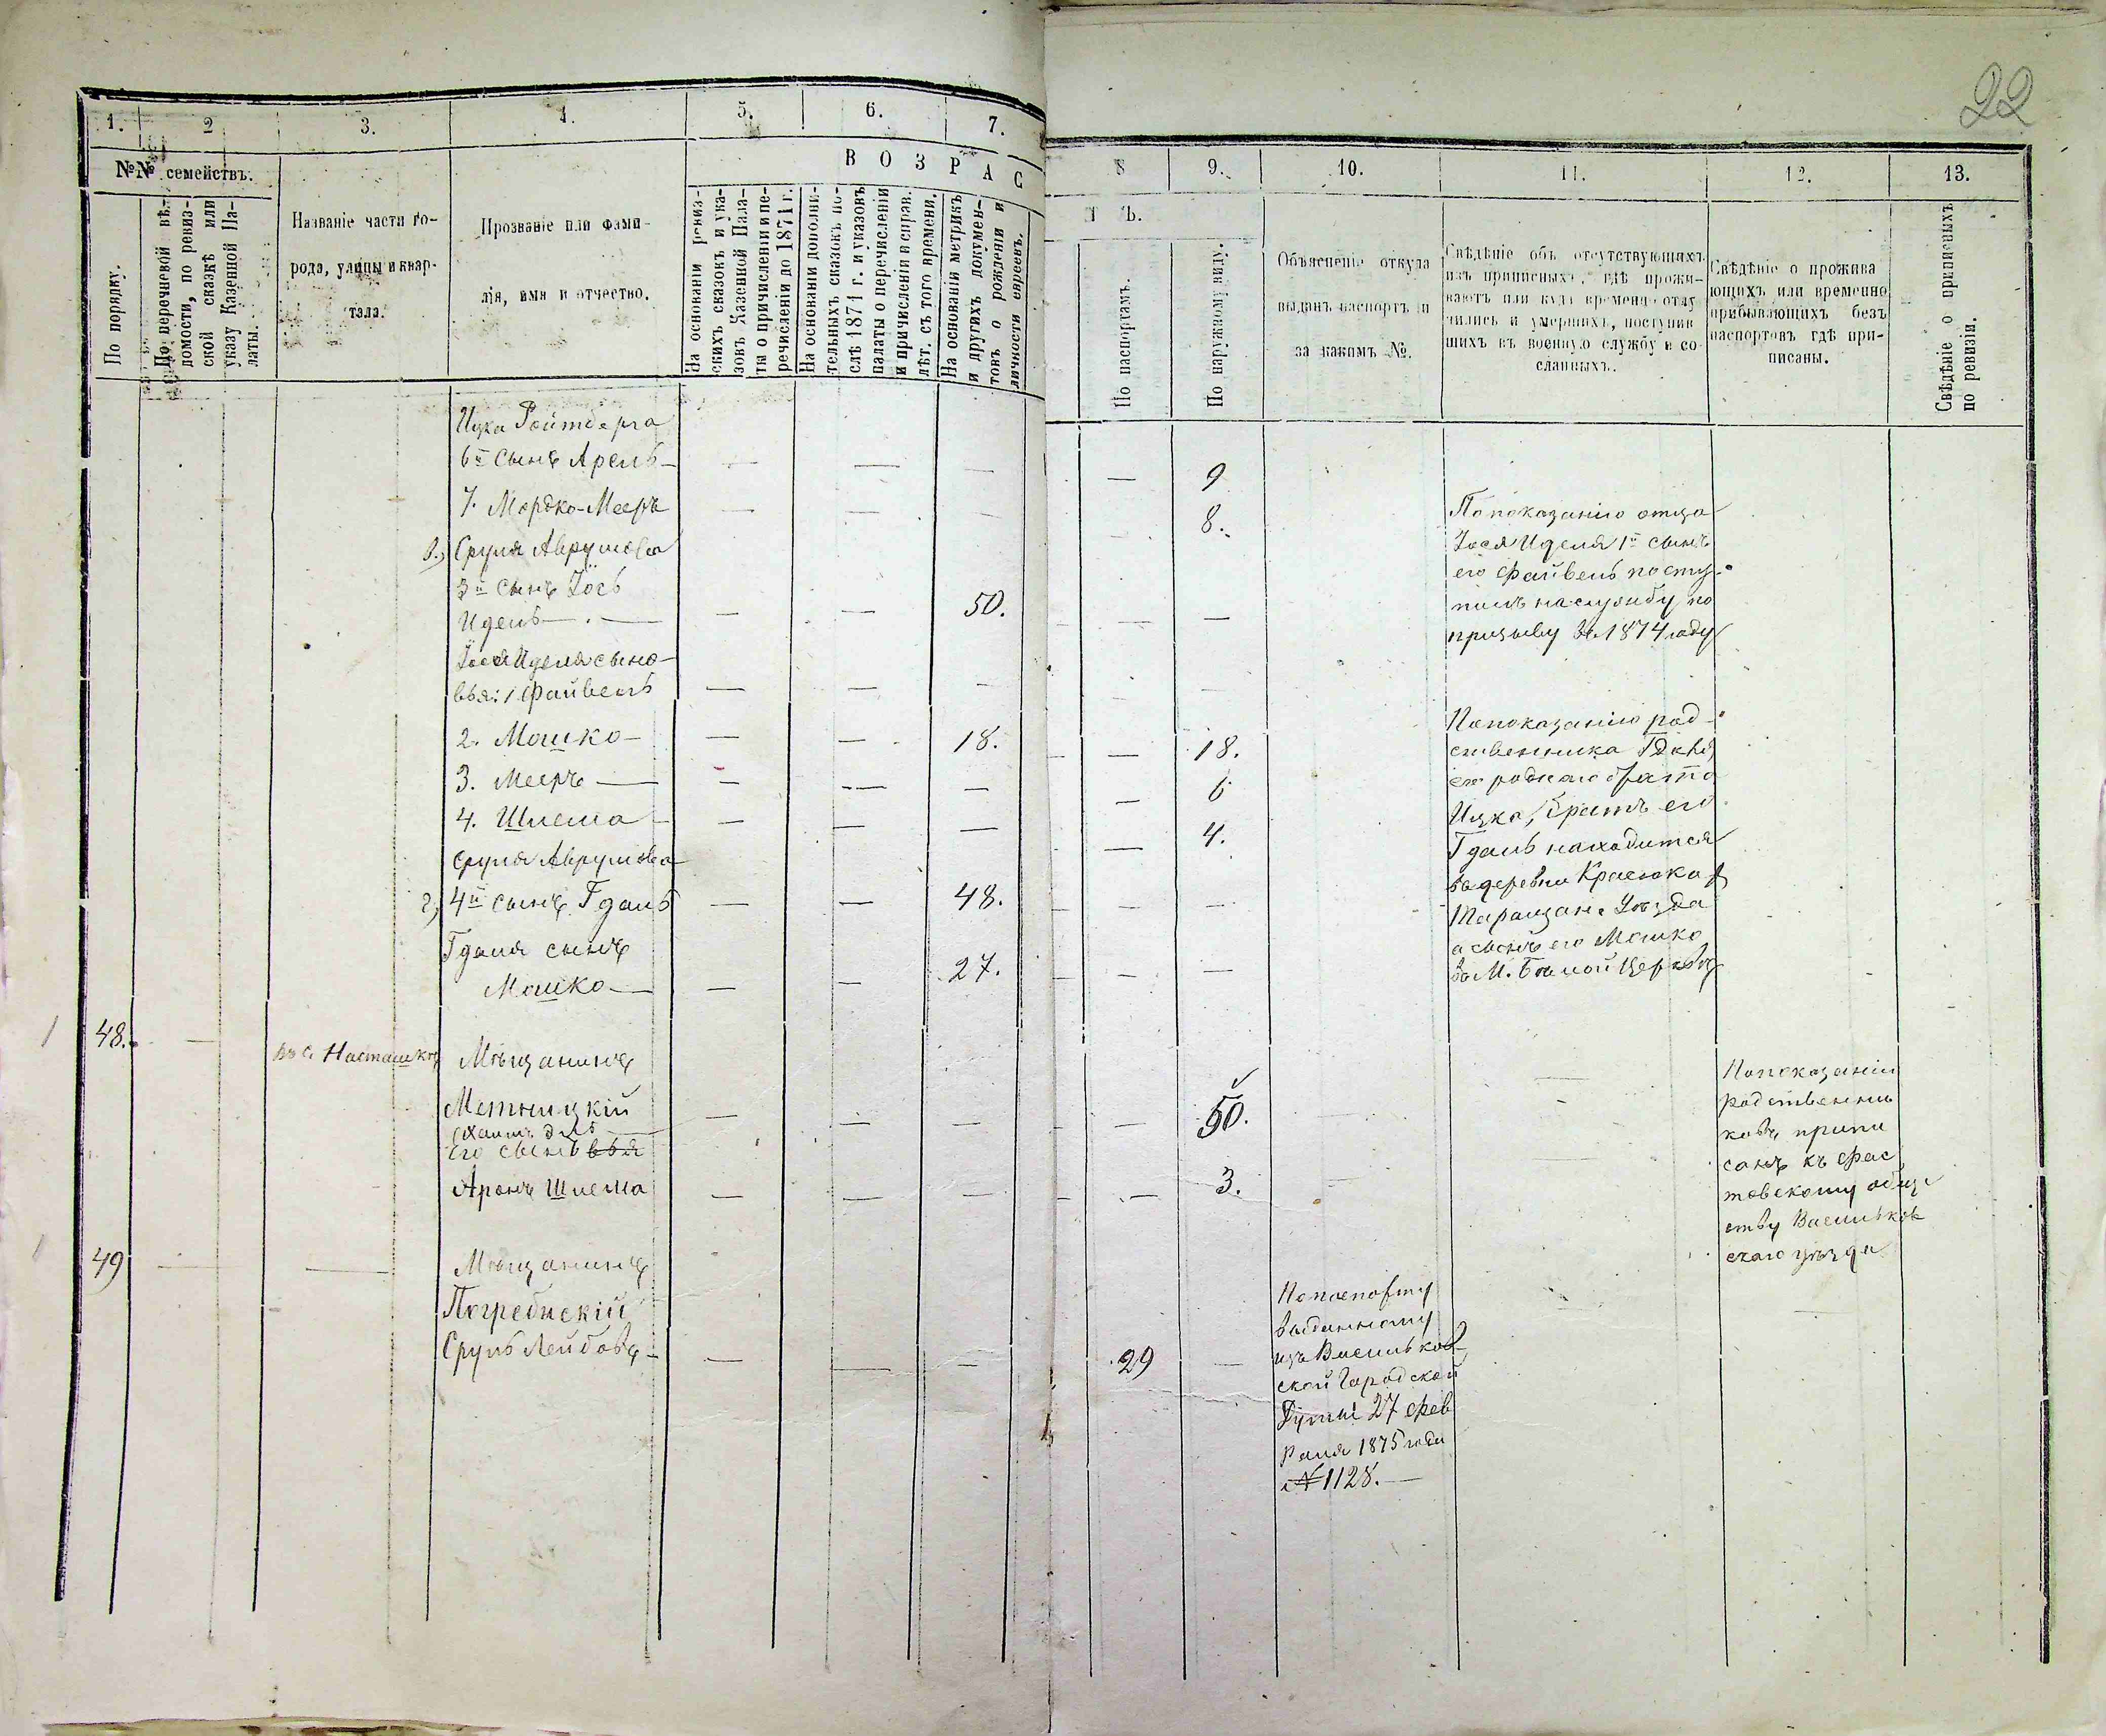 22
1. 2 3. 4. 5. 6. 7.
8 9. 10. 11. 12. 13.
№№ семействъ.
ВОЗРАС
Т Ъ.
По порядку.
По перечневой вѣ-
домости, по ревиз-
ской сказкѣ или
указу Казенной Па-
латы.
Названіе части го-
рода, улицы и квар-
тала.
Прозваніе или фами-
лія, имя и отчество.
На основаніи ревиз-
скихъ сказокъ и ука-
зовъ Казенной Пала-
ты о причисленіи и пе-
речисленіи до 1871 г.
На основаніи дополни-
тельныхъ сказокъ по-
слѣ 1871 г. и указовъ
палаты о перечисленіи
и причисленіи и справ.
лѣт. съ того времени.
На основаніи метрикъ
и другихъ докумен-
товъ о рожденіи и
личности евреевъ.
По паспортамъ.
По наружному виду.
Объясненіе откуда
выданъ паспортъ и
за какимъ №.
Свѣдѣніе объ отсутствующихъ
изъ приписныхъ, гдѣ прожи-
ваютъ или куда временно отлу
чились и умершихъ, поступив
шихъ въ военную службу и со-
сланныхъ.
Свѣдѣніе о прожива
ющихъ или временно
прибывающихъ безъ
паспортовъ гдѣ при-
писаны.
Свѣдѣніе о приписныхъ
по ревизіи.
Ицка Ройтберга
6й сынъ Арель — — — — — 9
7. Мордко-Мееръ — — — 8.
в.) Сруля Аврумова
3й сынъ Іось
Идель — — — 50. — —
Іося Иделя сыно-
вья: 1 Файвель — — — — —
2. Мошко — — — 18. — 18.
3. Мееръ — — — — — 6
4. Шлема — — — — — 4.
Сруля Аврумова
г) 4й сынъ Гдаль — — 48. — —
Гдаля сынъ
Мошко — — — 27. — —
По показанію отца
Іося Иделя 1й сынъ
его Файвель посту-
пилъ на службу по
призыву въ 1874 году
По показанію род-
ственника Гдаля,
его роднаго брата
Ицка, братъ его
Гдаль находится
въ деревни
Таращан. Уѣзда
а сынъ его Мошко
въ М. Бѣлой Церквѣ
1 48. — въ с. Насташкѣ Мѣщанинъ
Метницкій
Хаимъ
его сынъ вья — — — — 50. — —
Аронъ Шлема — — — — 3. — —
По показанію
родственни
ковъ припи
санъ къ Фас
товскому обще
ству Васильков
скаго уѣзда
1 49 — — Мѣщанинъ
Погребискій
Сруль Лейбовъ — — — — 29 — — —
По паспорту
выданному
изъ Васильков-
ской Городской
Думы 27 фев
раля 1875 года
№ 1128. —